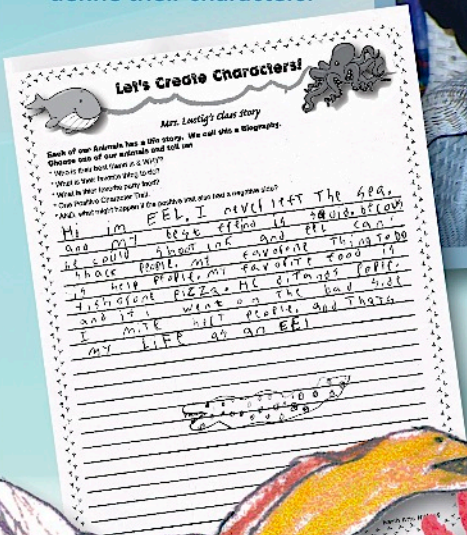 define their characters.
Let's Create Characters!
Mrs. Lustig's Class Story
Each of our Animals has a life story. We call this a Biography.
Choose one of our animals and tell us:
* Who is their best friend is & Why?
* What is their favorite thing to do?
* What is their favorite party food?
* One Positive Character Trait.
* AND, what might happen if the positive trait also had a negative side?
Hi im EEL. I never left The sea.
and my best friend is squid. becous
he could shoot ink and eel can
shock people. mi favorite Thing To Do
is help people. mi favorite food is
fishbone Pizza. He
and if i went on The bad side
I mite hert people, and Thats
my LiFe as an EEl